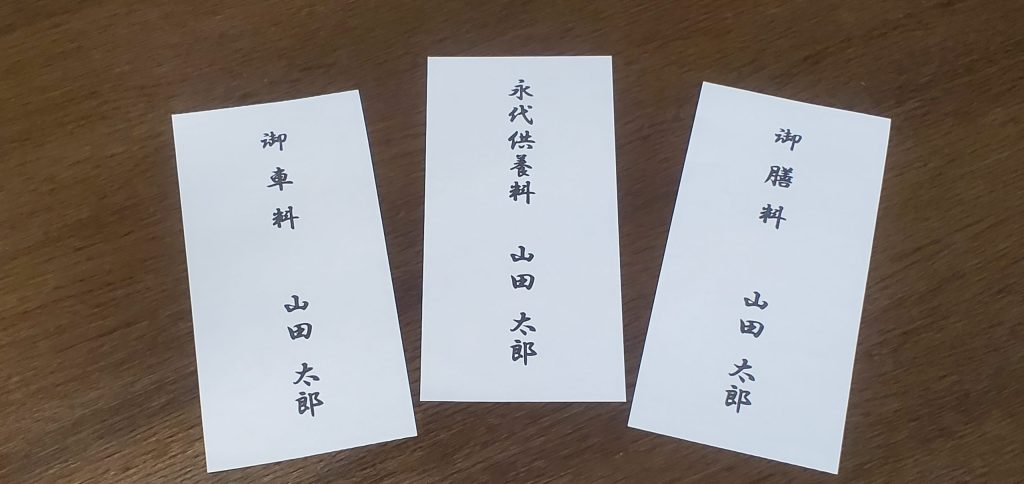 御車料
山田 太郎
永代供養料
山田 太郎
御膳料
山田 太郎